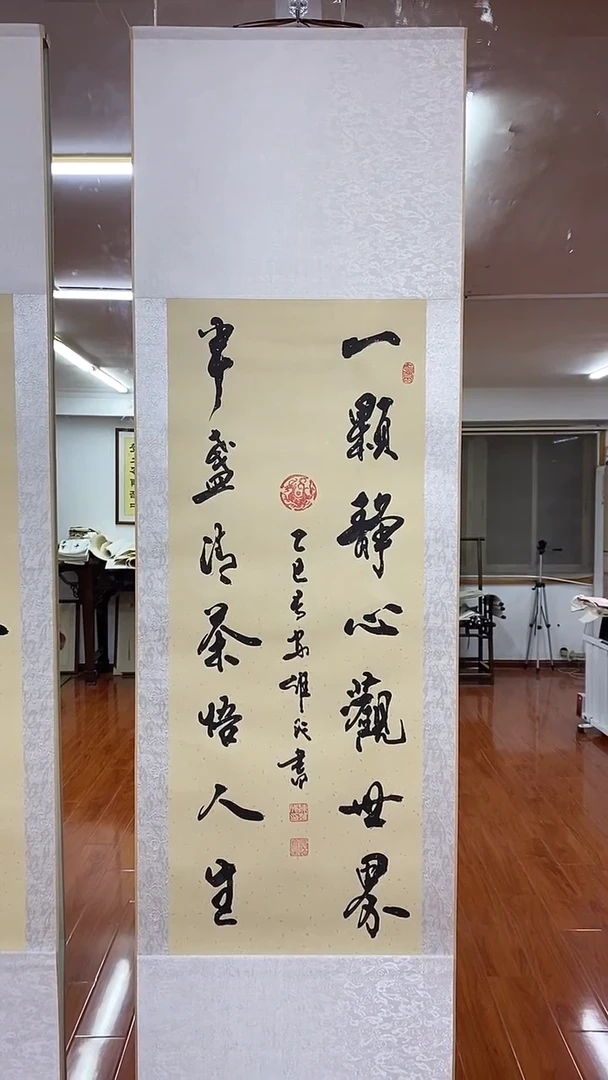 一顆静心觀世界
半盞清茶悟人生
乙巳春
書